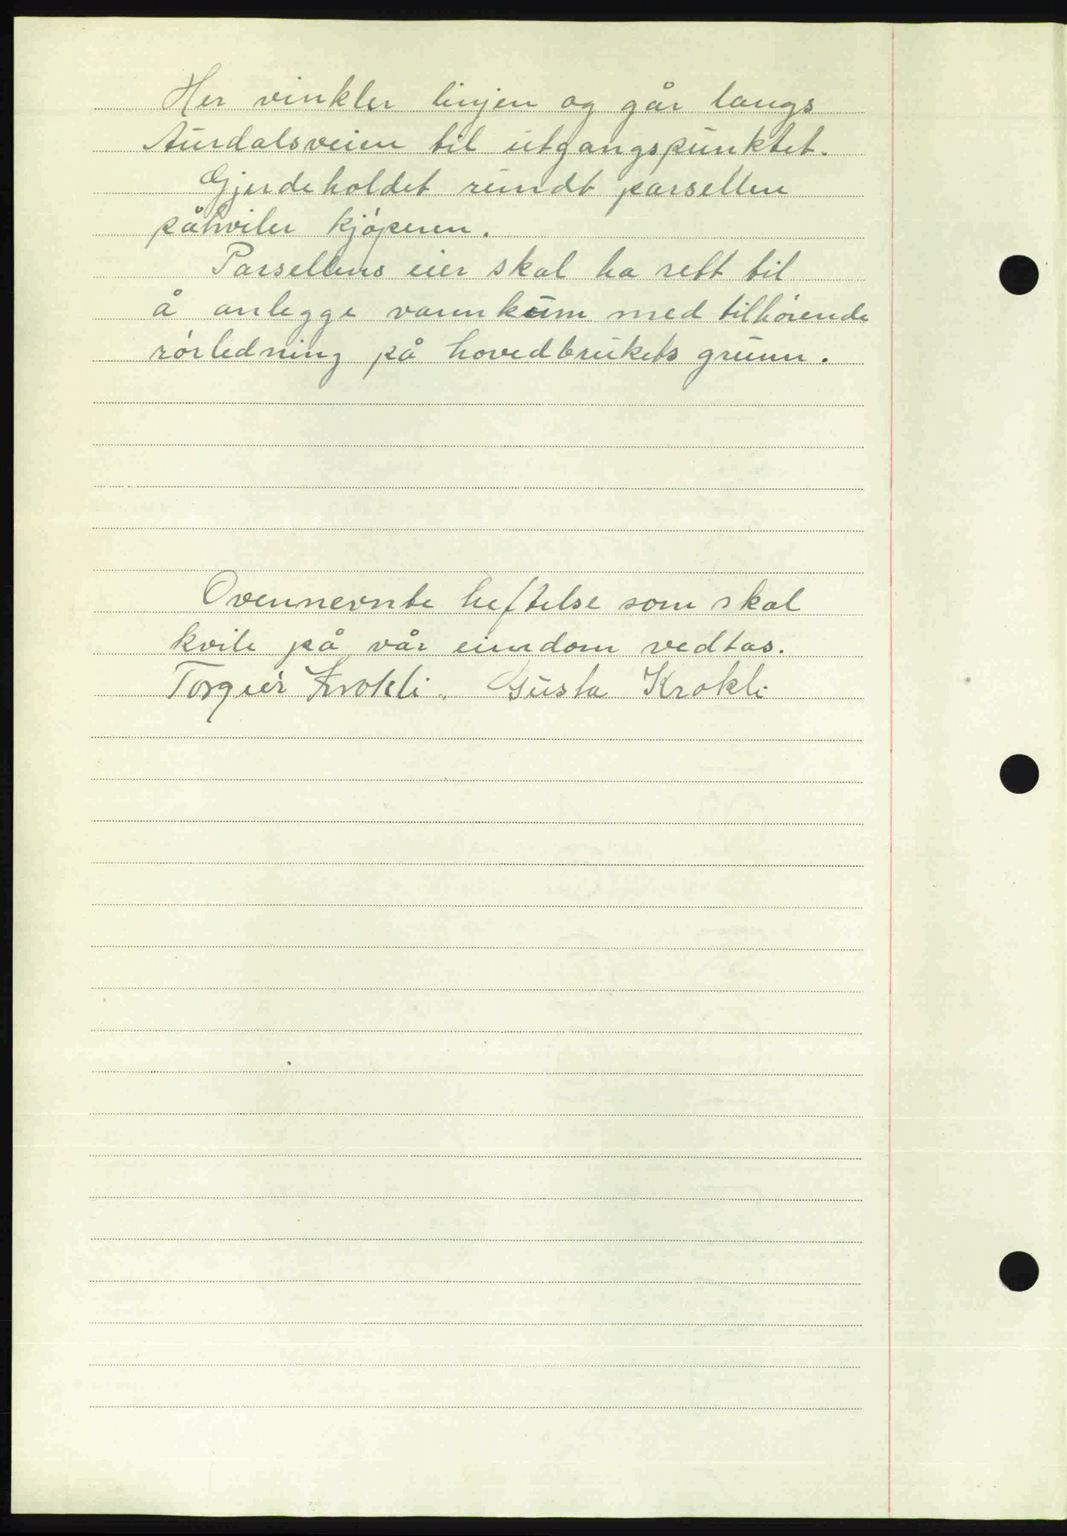 Her vinkler linjen og går langs
Aurdalsveien til utgangspunktet.
Gjerdeholdet rundt parsellen
påhviler kjøperen.
Parsellens eier skal ha rett til
å anlegge vannkum med tilhørende
rørledning på hovedbrukets grunn.
Ovennevnte heftelse som skal
kvile på vår eiendom vedtas.
Torgeir Krokli. Gusta Krokli